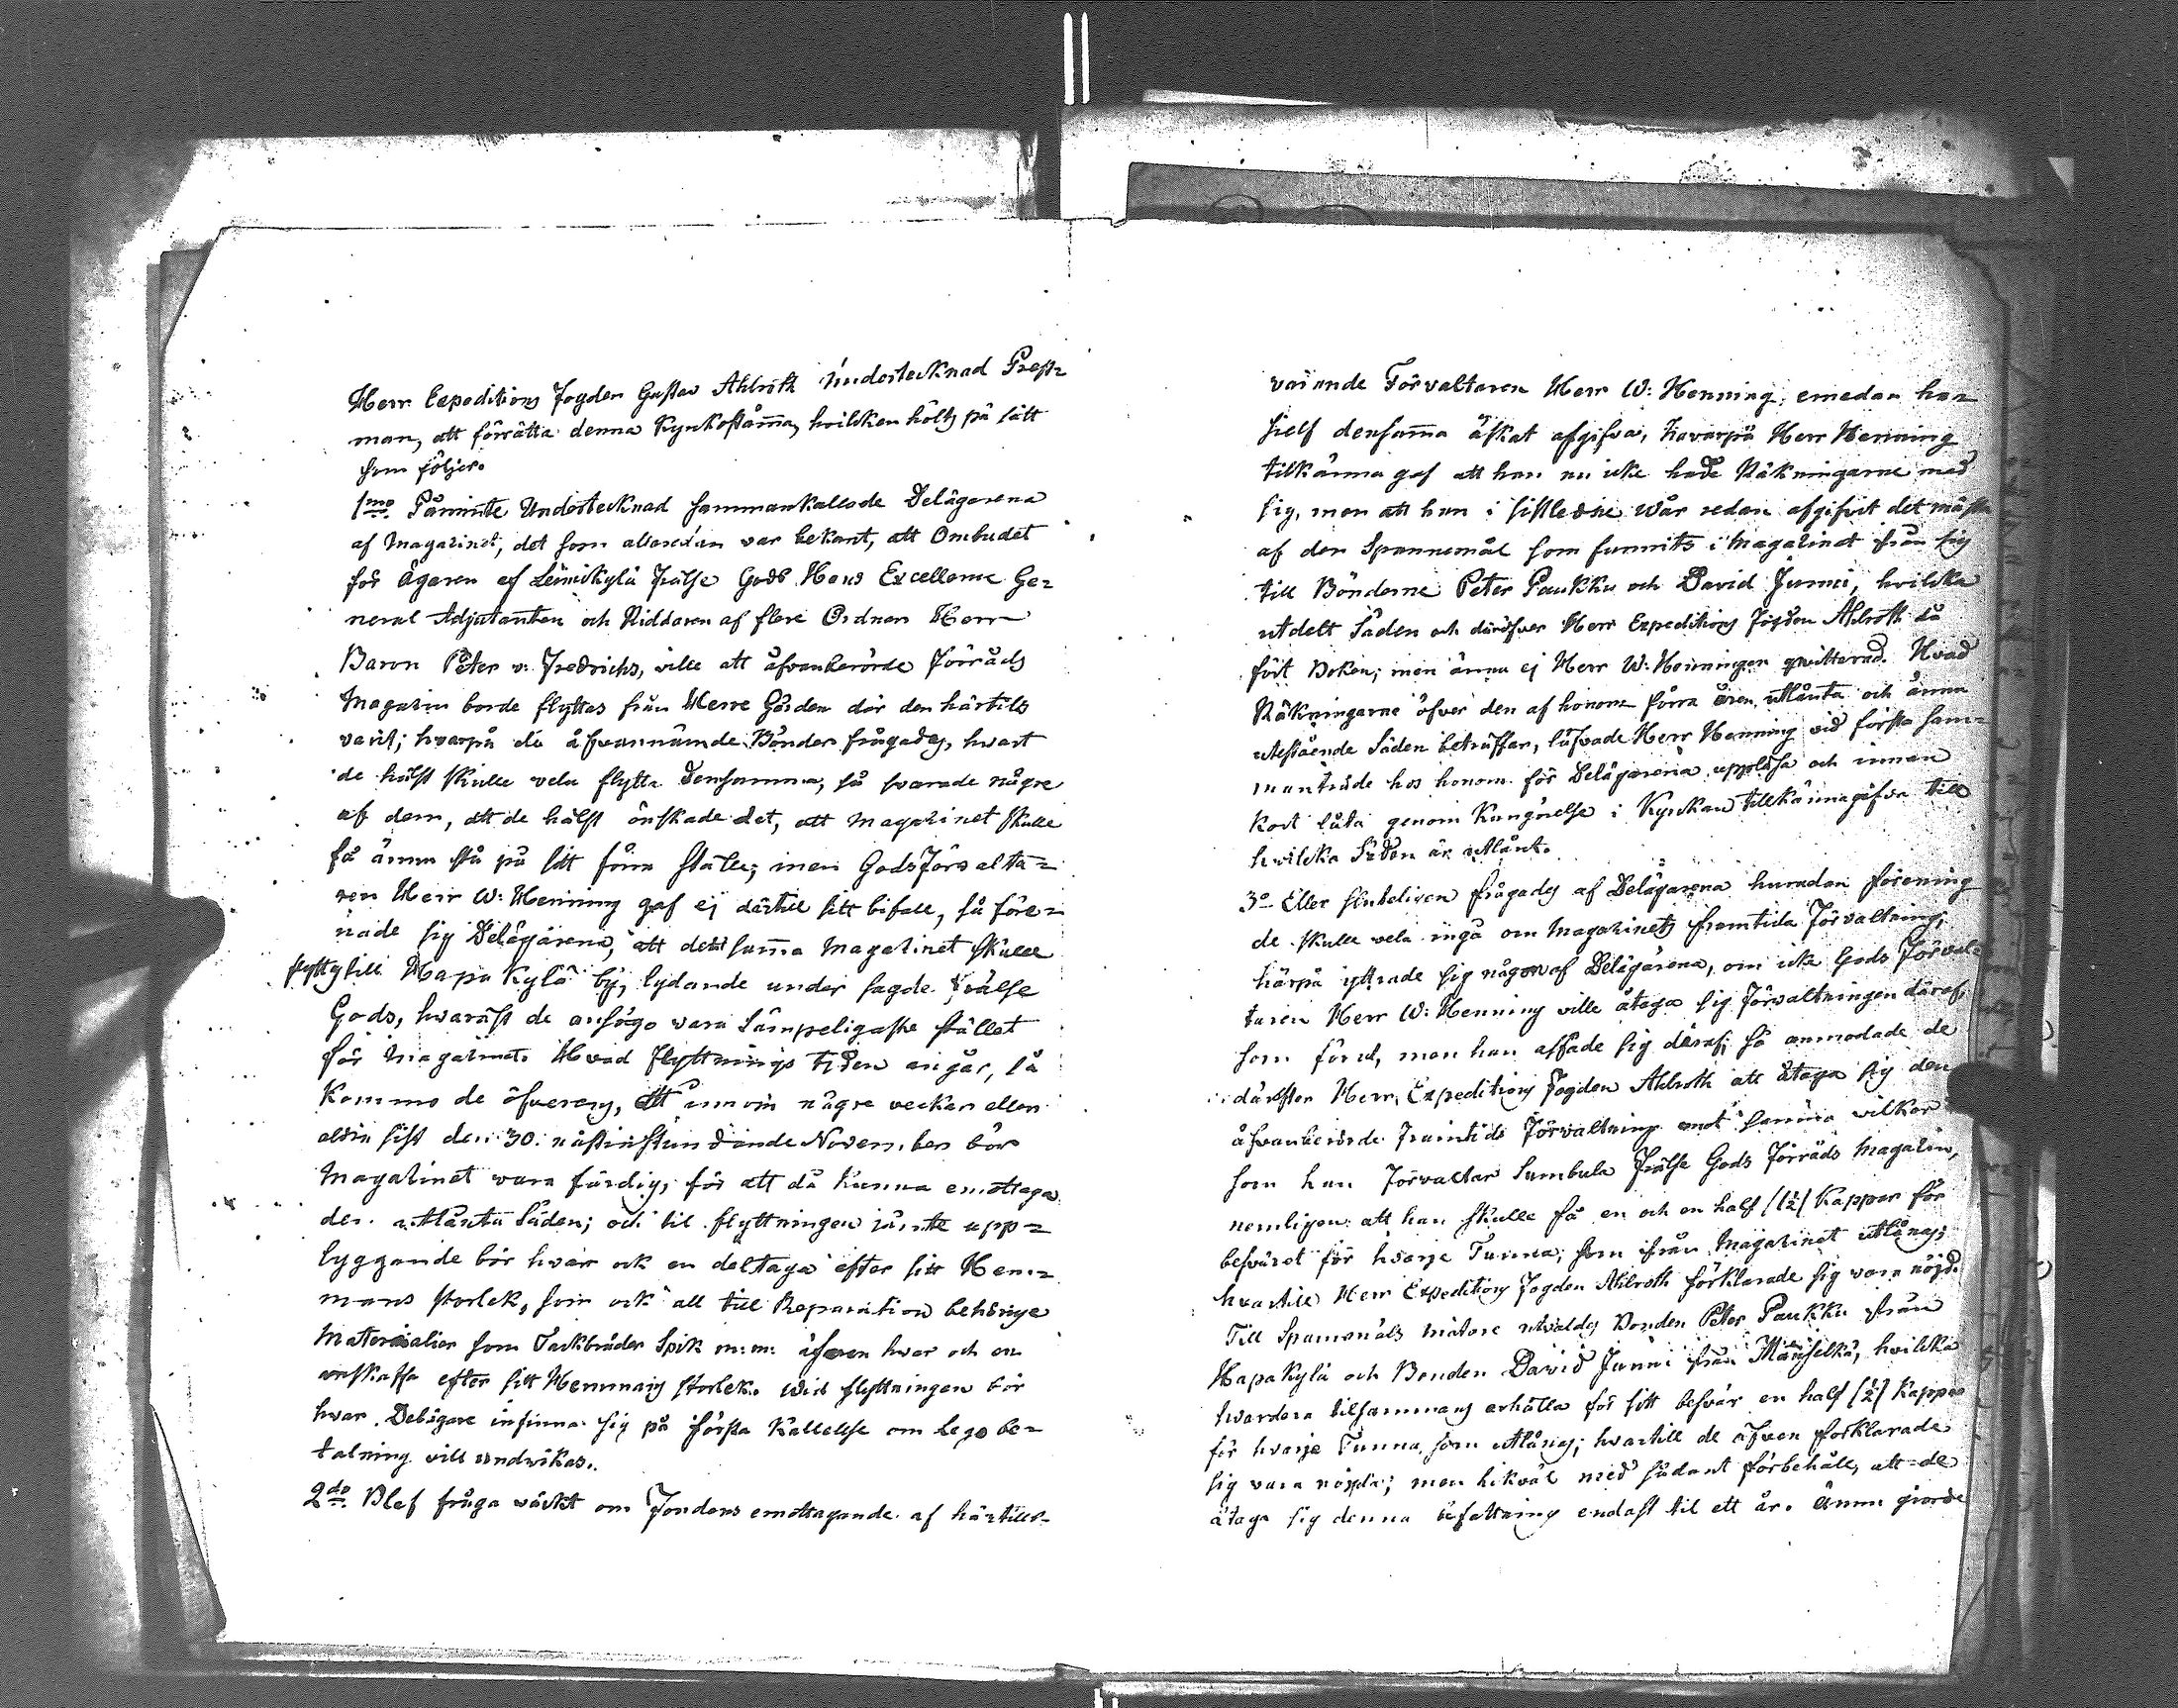 Herr Expeditions Fogden Gustav Ahlroth Undertecknad Prest=
man, att förrätta denna Kyrkostämma, hvilken hölts på sätt
som följer.
1mo Påminte Undertecknad sammankallade Delägarena
af Magazinet, det som alloredan var bekant, att Ombudet
för Ägaren af Lämikylä Frälse Gods Hans Excellence Ge=
neral Adjutanten och Riddaren af flere Ordnar Herr
Baron Peter v: Fredrichs, ville att åfvanberörde Förråds
Magazin borde flyttas från Herre Gården där den härtils
varit; hvarpå de åfvannämde Bönder frågades, hvart
de hälst skulle vela flytta densamma, så svarade någre
af dem, att de hälst önskade det, att Magazinet skulle
få ännu stå på sitt förra ställe; men GodsFörvalta=
ren Herr W: Henning gaf ej därtill sitt bifall, så före=
nade sig Delägarena, att detsamma Magazinet skulle
flyttas till Hapa Kylä by, lydande under sagde Frälse
Gods, hvaräst de ansågo vara Lämpeligaste stället
för Magazinet. Hvad flyttnings tiden angår, så
Kommo de öfverens, att innom någre veckor eller
aldra sist den 30. nästinstundande November bör
Magazinet vara färdig, för att då kunna emottaga
den utlånta Säden; och til flyttningen jämte upp=
byggande bör hvar ock en deltaga efter sitt Hem=
mans storlek, som ock all till Reparation behörige
Materialier som Takbräder Spik m: m: äfven hvar och en
anskaffa efter sitt Hemmans storlek. Wid flyttningen bör
hvar Delägare infinna sig på första Kallelse om Lego be=
talning vill undvikas.
2do Blef fråga väckt om Fondens emottagande af härtills=
varande Förvaltaren Herr W: Henning, emedan han
sielf densamma äskat afgifva, hvarpå Herr Henning
tilkänna gaf att han nu icke hade Räkningarne med
sig, men att han i sistledne Wår redan afgifvit det mästa
af den Spannemål som funnits i Magazinet från sig
till Bönderne Peter Paukku och David Junni, hvilka
utdelt Säden och däröfver Herr Expeditions Fogden Ahlroth då
fört Boken; men ännu ej Herr W: Henningen qvitterad. Hvad
Räkningarne öfver den af honom förra åren utlånta och ännu
utestående Säden beträffar, låfvade Herr Henning vid första sam=
manträde hos honom för Delägarena uppläsa och innan
kort låta genom Kungörelse i Kyrkan tillkännagifva till
hvilka Säden är utlånt.
3o Eller sluteligen frågades af Delägarena hurudan förening
de skulle vela ingå om Magazinets framtida Förvaltning;
härpå yttrade sig någon af Delägarena, om icke Gods Förval=
taren Herr W: Henning ville åtaga sig Förvaltningen däraf,
som förut, men han afsade sig däraf; så anmodade de
därefter Herr Expeditions Fogden Ahlroth att åtaga sig den
åfvanberörde framtida Förvaltning mot samma vilkor
som han Förvaltar Sumbula Frälse Gods Förråds Magazin,
nemligen: att han skulle få en och en half (1½) Kappar för
besväret för hvarje Tunna, som ifrån Magazinet utlånas;
hvartill Herr Expeditions Fogden Ahlroth förklarade sig vara nöjd.
Till Spannmåls mätare utvaldes Bonden Peter Paukku från
HapaKylä och Bonden David Junni från Mänselkä, hvilka
hvardera tilsammans erhålla för sitt besvär en half (½) Kappe
för hvarje Tunna som utlånas; hvartill de äfven förklarade
sig vara nöjda; men likväl med sådant förbehåll, att de
åtaga sig denna befattning endast til ett år. Ännu giorde